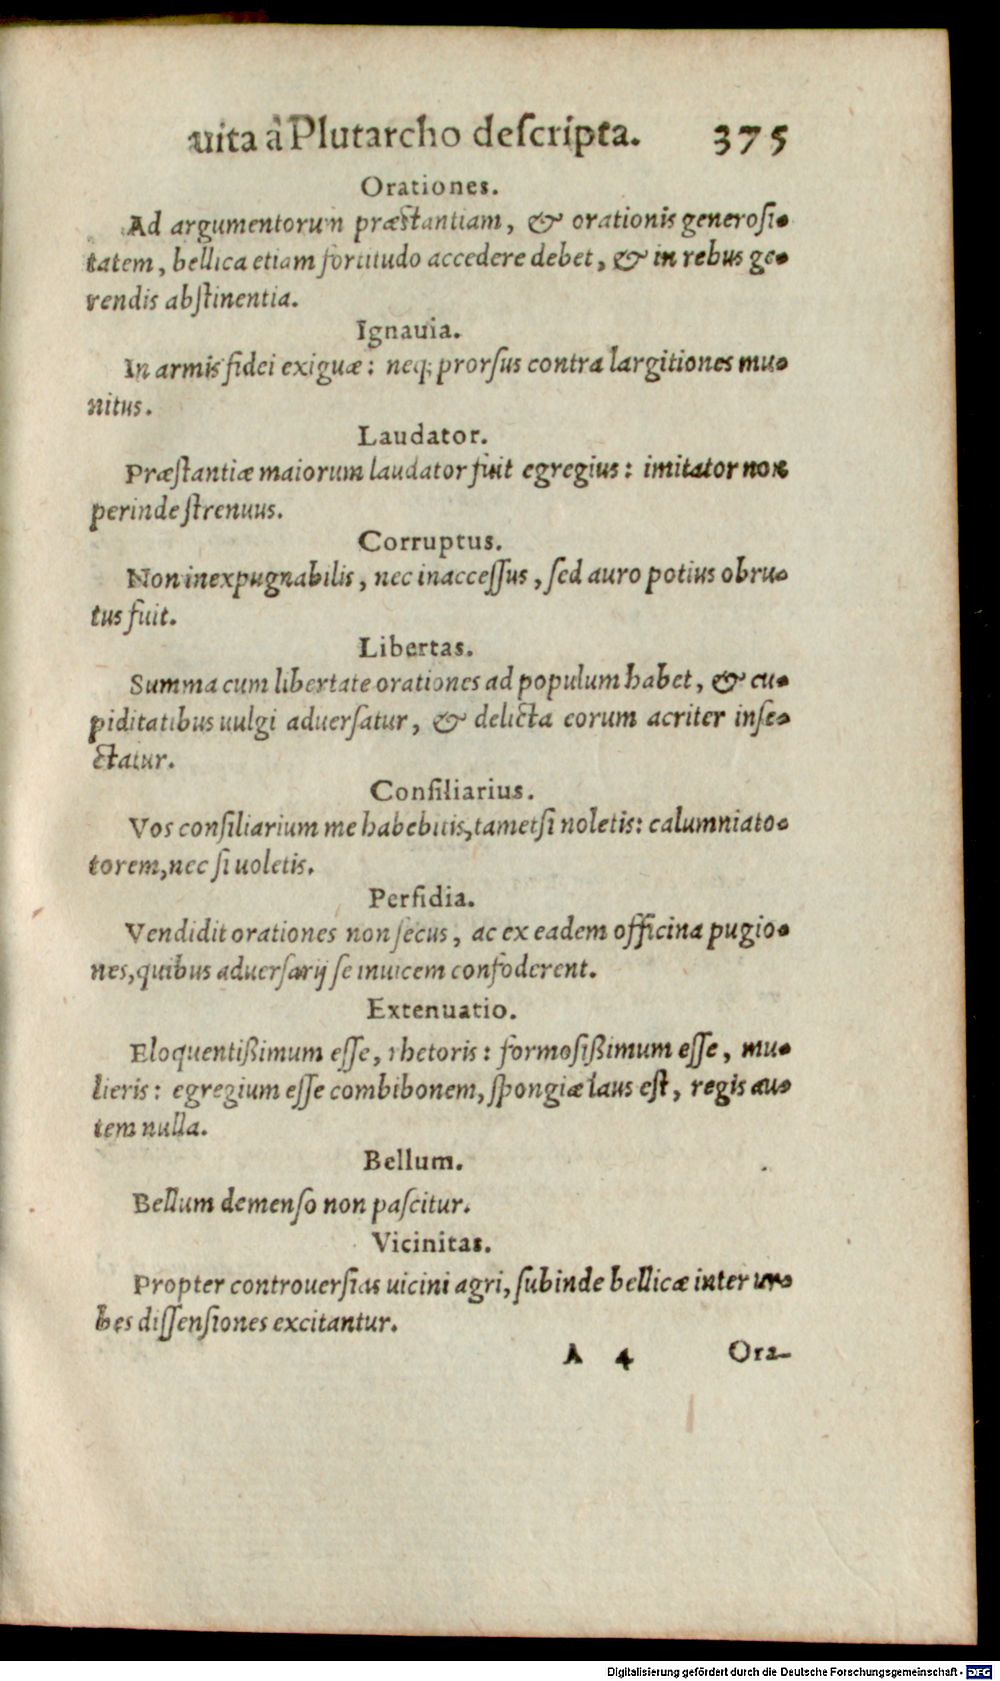 uita à Plutarcho deſcripta. 375
Orationes.
Ad argumentorum præſtantiam, & orationis generoſi-
tatem, bellica etiam fortitudo accedere debet, & in rebus ge-
rendis abſtinentia.
Ignauia.
In armis fidei exiguæ: neq; prorſus contra largitiones mu-
nitus.
Laudator.
Præſtantiæ maiorum laudator fuit egregius: imitator non
perinde ſtrenuus.
Corruptus.
Non inexpugnabilis, nec inacceſſus, ſed auro potius obru-
tus fuit.
Libertas.
Summa cum libertate orationes ad populum habet, & cu-
piditatibus uulgi aduerſatur, & delicta eorum acriter inſe-
ctatur.
Conſiliarius.
Vos conſiliarium me habebitis, tametſi noletis: calumniato-
torem, nec ſi uoletis.
Perfidia.
Vendidit orationes non ſecus, ac ex eadem officina pugio-
nes, quibus aduerſarij ſe inuicem confoderent.
Extenuatio.
Eloquentißimum eſſe, rhetoris: formoſißimum eſſe, mu-
lieris: egregium eſſe combibonem, ſpongiæ laus eſt, regis au-
tem nulla.
Bellum.
Bellum demenſo non paſcitur.
Vicinitas.
Propter controuerſias uicini agri, ſubinde bellicæ inter ur-
bes diſſenſiones excitantur.
A 4 Ora-
Digitalisierung gefördert durch die Deutsche Forschungsgemeinschaft - DFG